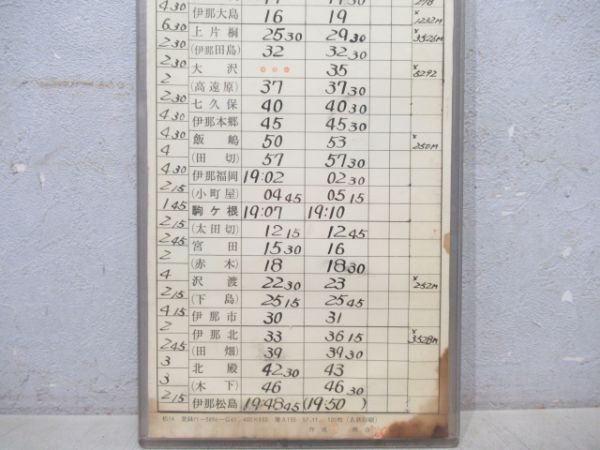 4 30
伊那大島 16 19 ×1232M
6 30
上片桐 25 30 29 30 ×3526M
2 30
(伊那田島) 32 32 30
2 30
大沢 ○○○ 35 ×5292
2
(高遠原) 37 37 30
2 30
七久保 40 40 30
4 30
伊那本郷 45 45 30
4 30
飯嶋 50 53 ×250M
4
(田切) 57 57 30
4 30
伊那福岡 19:02 02 30
2 15
(小町屋) 04 45 05 15
1 45
駒ヶ根 19:07 19:10
2 15
(太田切) 12 15 12 45
2 45
宮田 15 30 16
2
(赤木) 18 18 30
4
沢渡 22 30 23 ×252M
2 15
(下島) 25 15 25 45
4 15
伊那市 30 31
2
伊那北 33 36 15 ×3528M
2 45
(田畑) 39 39 30
3
北殿 42 30 43
3
(木下) 46 46 30
2 15
伊那松島 19:48 45 (19:50)